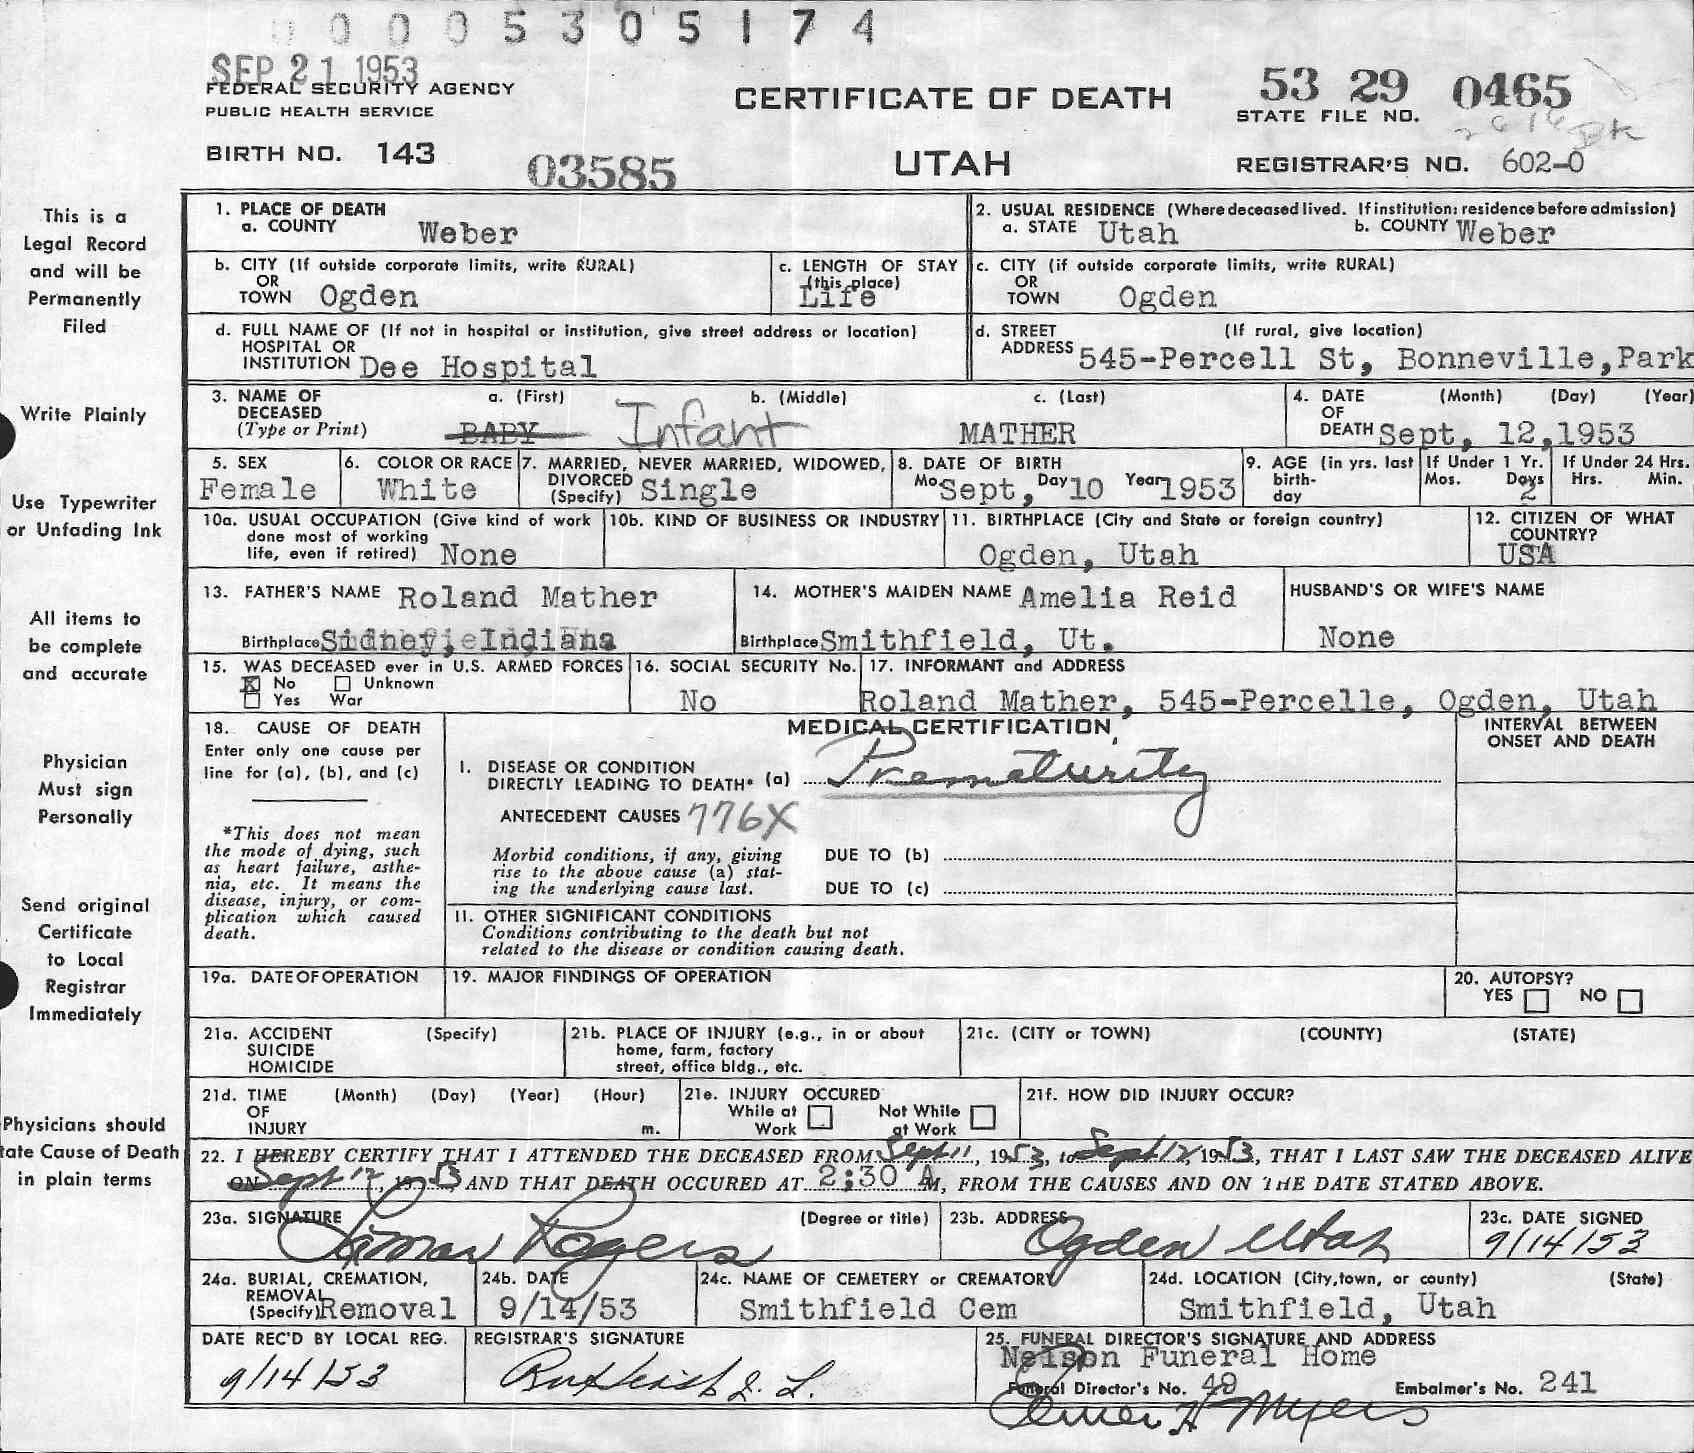 0 0 0 0 5 3 0 5 1 7 4
SEP 21 1953
FEDERAL SECURITY AGENCY
PUBLIC HEALTH SERVICE
CERTIFICATE OF DEATH
53 29 0465
STATE FILE NO.
BIRTH NO. 143
03585
UTAH
REGISTRAR'S NO. 602-0
This is a
Legal Record
and will be
Permanently
Filed
Write Plainly
Use Typewriter
or Unfading Ink
All items to
be complete
and accurate
Physician
Must sign
Personally
Send original
Certificate
to Local
Registrar
Immediately
Physicians should
tate Cause of Death
in plain terms
1. PLACE OF DEATH
a. COUNTY Weber
2. USUAL RESIDENCE (Where deceased lived. If institution: residence before admission)
a. STATE Utah b. COUNTY Weber
b. CITY (If outside corporate limits, write RURAL)
OR
TOWN Ogden
c. LENGTH OF STAY
(this place)
Life
c. CITY (if outside corporate limits, write RURAL)
OR
TOWN Ogden
d. FULL NAME OF (If not in hospital or institution, give street address or location)
HOSPITAL OR
INSTITUTION Dee Hospital
d. STREET (If rural, give location)
ADDRESS 545-Percell St, Bonneville,Park
3. NAME OF a. (First) b. (Middle) c. (Last)
DECEASED
(Type or Print) BABY Infant MATHER
4. DATE (Month) (Day) (Year)
OF
DEATH Sept, 12,1953
5. SEX
Female
6. COLOR OR RACE
White
7. MARRIED, NEVER MARRIED, WIDOWED,
DIVORCED
(Specify) Single
8. DATE OF BIRTH
Mo Sept, Day 10 Year 1953
9. AGE (in yrs. last
birth-
day
If Under 1 Yr.
Mos. Days
2
If Under 24 Hrs.
Hrs. Min.
10a. USUAL OCCUPATION (Give kind of work
done most of working
life, even if retired) None
10b. KIND OF BUSINESS OR INDUSTRY
11. BIRTHPLACE (City and State or foreign country)
Ogden, Utah
12. CITIZEN OF WHAT
COUNTRY?
USA
13. FATHER'S NAME Roland Mather
Birthplace Sidney, Indiana
14. MOTHER'S MAIDEN NAME Amelia Reid
Birthplace Smithfield, Ut.
HUSBAND'S OR WIFE'S NAME
None
15. WAS DECEASED ever in U.S. ARMED FORCES
No Unknown
Yes War
16. SOCIAL SECURITY No.
No
17. INFORMANT and ADDRESS
Roland Mather, 545-Percelle, Ogden, Utah
18. CAUSE OF DEATH
Enter only one cause per
line for (a), (b), and (c)
*This does not mean
the mode of dying, such
as heart failure, asthe-
nia, etc. It means the
disease, injury, or com-
plication which caused
death.
MEDICAL CERTIFICATION
INTERVAL BETWEEN
ONSET AND DEATH
I. DISEASE OR CONDITION
DIRECTLY LEADING TO DEATH* (a) Prematurity
ANTECEDENT CAUSES 776X
Morbid conditions, if any, giving
rise to the above cause (a) stat-
ing the underlying cause last.
DUE TO (b)
DUE TO (c)
11. OTHER SIGNIFICANT CONDITIONS
Conditions contributing to the death but not
related to the disease or condition causing death.
19a. DATE OF OPERATION
19. MAJOR FINDINGS OF OPERATION
20. AUTOPSY?
YES NO
21a. ACCIDENT (Specify)
SUICIDE
HOMICIDE
21b. PLACE OF INJURY (e.g., in or about
home, farm, factory
street, office bldg., etc.
21c. (CITY or TOWN) (COUNTY) (STATE)
21d. TIME (Month) (Day) (Year) (Hour)
OF
INJURY m.
21e. INJURY OCCURED
While at Work
Not While at Work
21f. HOW DID INJURY OCCUR?
22. I HEREBY CERTIFY THAT I ATTENDED THE DECEASED FROM Sept 11, 1953, to Sept 12, 1953, THAT I LAST SAW THE DECEASED ALIVE
ON Sept 12, 1953, AND THAT DEATH OCCURED AT 2:30 A M, FROM THE CAUSES AND ON THE DATE STATED ABOVE.
23a. SIGNATURE (Degree or title)
Lamar Rogers
23b. ADDRESS
Ogden Utah
23c. DATE SIGNED
9/14/53
24a. BURIAL, CREMATION,
REMOVAL
(Specify) Removal
24b. DATE
9/14/53
24c. NAME OF CEMETERY or CREMATORY
Smithfield Cem
24d. LOCATION (City,town, or county) (State)
Smithfield, Utah
DATE REC'D BY LOCAL REG.
9/14/53
REGISTRAR'S SIGNATURE
25. FUNERAL DIRECTOR'S SIGNATURE AND ADDRESS
Nelson Funeral Home
Funeral Director's No. 49 Embalmer's No. 241
Elmer H Myers